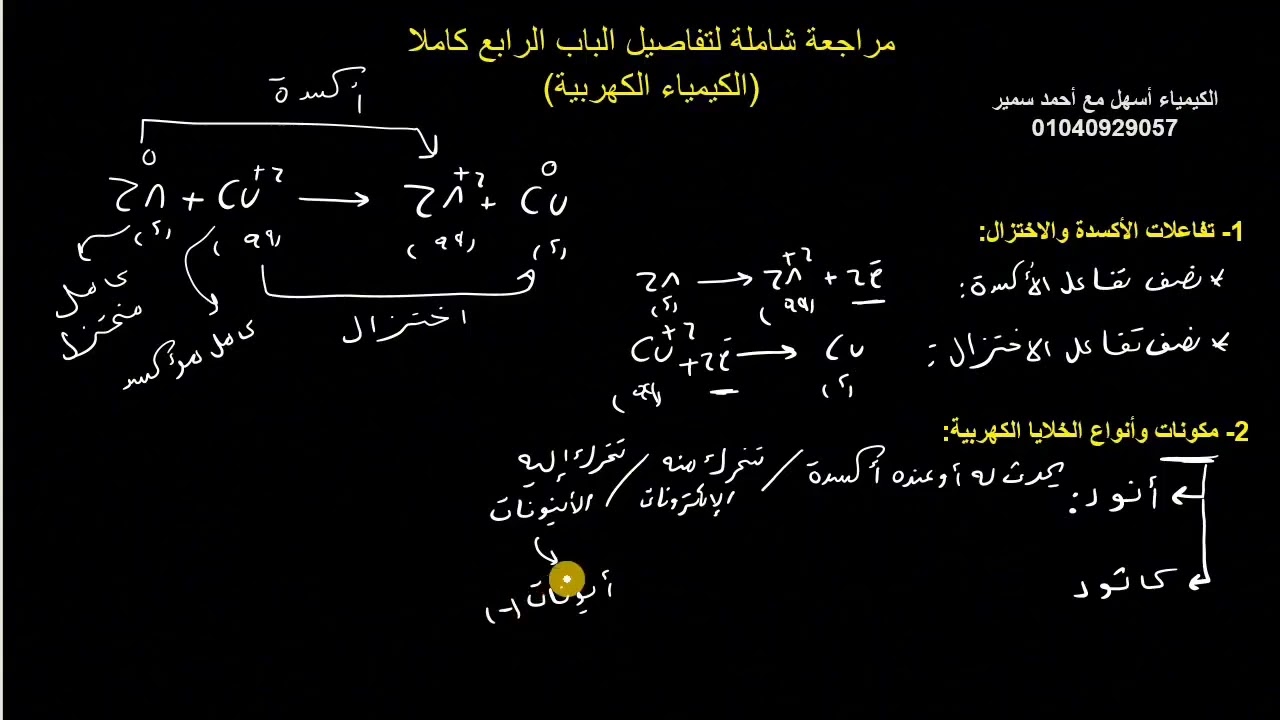 مراجعة شاملة لتفاصيل الباب الرابع كاملا
(الكيمياء الكهربية)
الكيمياء أسهل مع أحمد سمير
01040929057
أكسدة
Zn⁰ + Cu⁺² ⟶ Zn⁺² + Cu⁰
(s) (aq) (aq) (s)
عامل مختزل
عامل مؤكسد
اختزال
1- تفاعلات الأكسدة والاختزال:
* نصف تفاعل الأكسدة: Zn ⟶ Zn⁺² + 2e⁻
(s) (aq)
* نصف تفاعل الاختزال: Cu⁺² + 2e⁻ ⟶ Cu
(aq) (s)
2- مكونات وأنواع الخلايا الكهربية:
أنود: يحدث له أو عنده أكسدة / تتحرك منه الإلكترونات / تتحرك إليه الأنيونات
أيونات (-)
كاثود